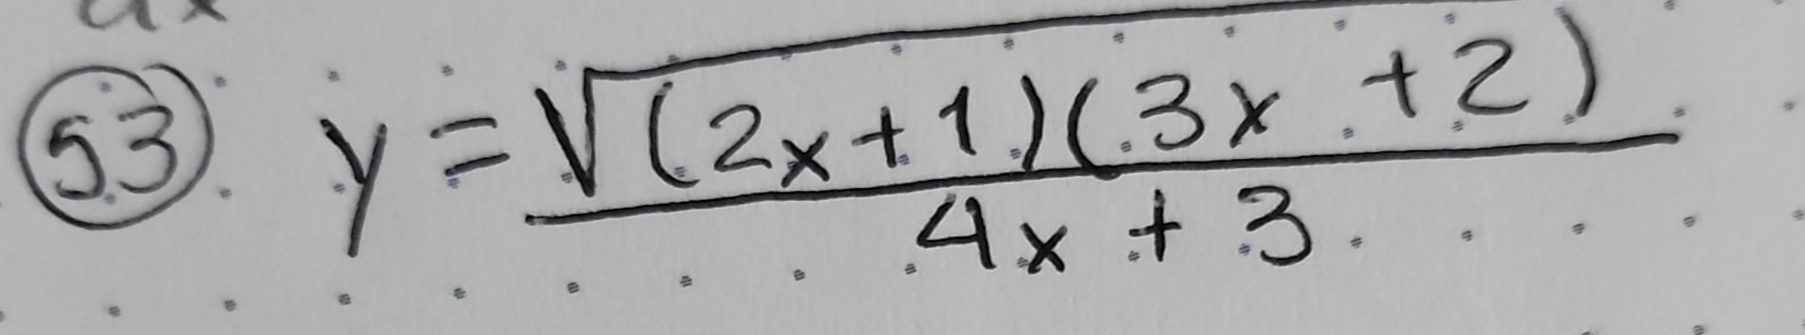 dx
53 y = √(2x+1)(3x+2)
4x + 3